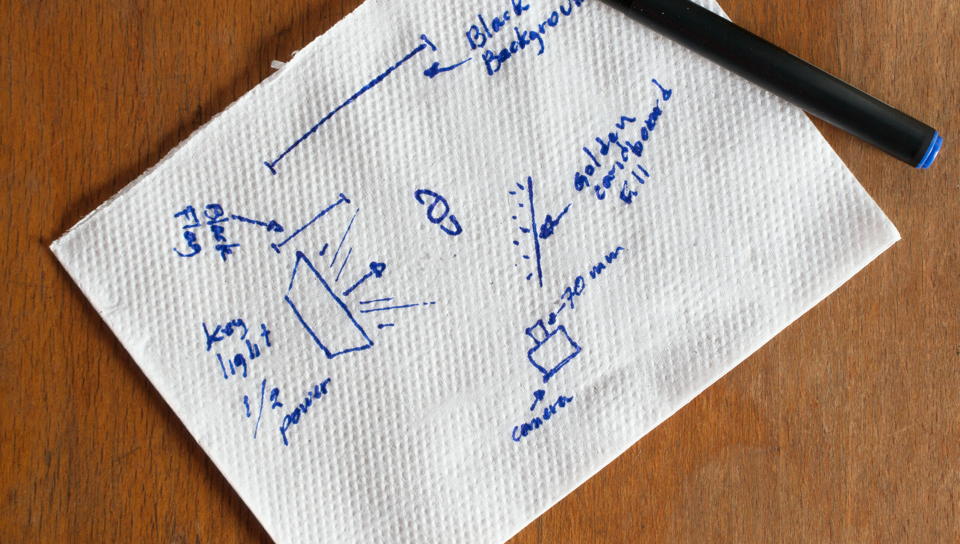 Black
Background
Golden
cardboard
Fill
Black
Flag
70 mm
Key
light
1/2
power
camera